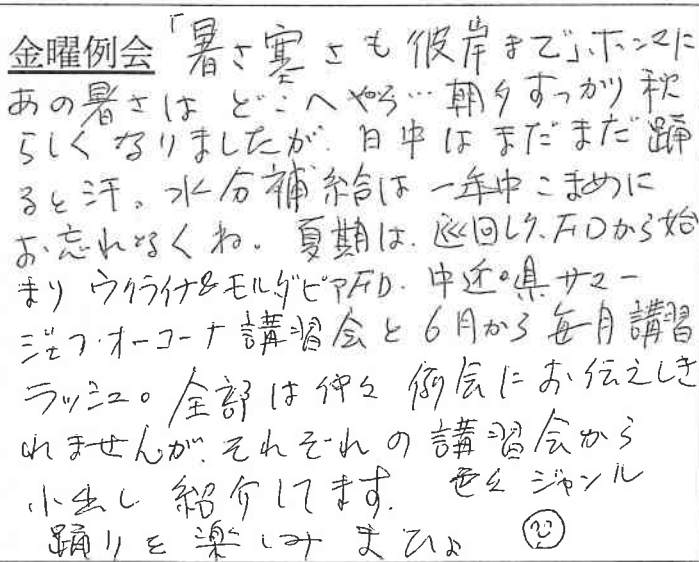 金曜例会「暑さ寒さも彼岸まで」ホンマに
あの暑さはどこへやら…朝夕すっかり秋
らしくなりましたが、日中はまだまだ踊
ると汗。水分補給は一年中こまめに
お忘れなくね。夏期は、巡回レク、FDから始
まり ウクライナ&モルダビアFD、中近県サマー
ジェフ・オーコーナ講習会と6月から毎月講習
ラッシュ。全部は仲々例会にお伝えしき
れませんが、それぞれの講習会から
小出し紹介してます。色々ジャンル
踊りを楽しみまひょ